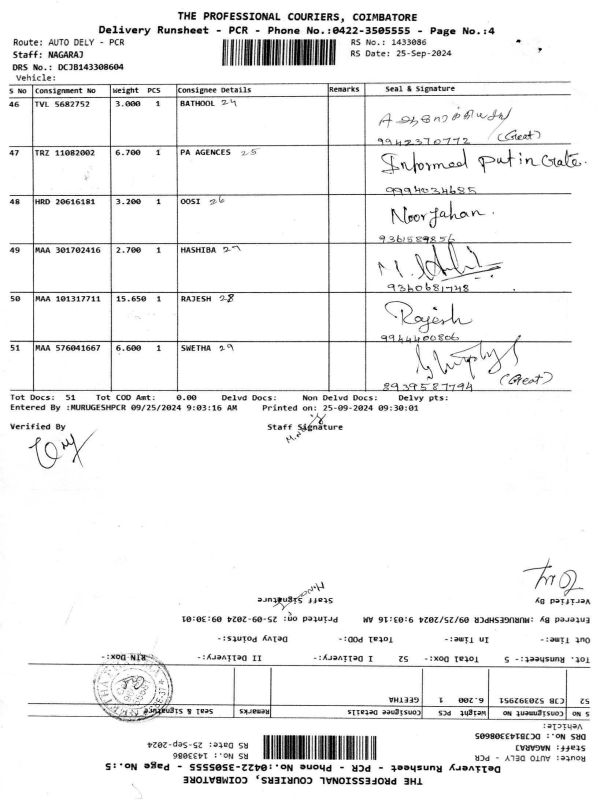 THE PROFESSIONAL COURIERS, COIMBATORE
Delivery Runsheet - PCR - Phone No.:0422-3505555 - Page No.:4
Route: AUTO DELY - PCR
RS No.: 1433086
Staff: NAGARAJ
RS Date: 25-Sep-2024
DRS No.: DCJB143308604
Vehicle:
S No Consignment No Weight PCS Consignee Details Remarks Seal & Signature
46 TVL 5682752 3.000 1 BATHOOL 24
9942370772 (Great)
47 TRZ 11082002 6.700 1 PA AGENCES 25 Informed put in Grate.
9994034685
48 HRD 20616181 3.200 1 OOSI 26 Noorjahan.
9361589856
49 MAA 301702416 2.700 1 HASHIBA 27
9340681748
50 MAA 101317711 15.650 1 RAJESH 28 Rajesh
9944400806
51 MAA 576041667 6.600 1 SWETHA 29
8939587794 (Great)
Tot Docs: 51 Tot COD Amt: 0.00 Delvd Docs: Non Delvd Docs: Delvy pts:
Entered By :MURUGESHPCR 09/25/2024 9:03:16 AM Printed on: 25-09-2024 09:30:01
Verified By Staff Signature
THE PROFESSIONAL COURIERS, COIMBATORE
Delivery Runsheet - PCR - Phone No.:0422-3505555 - Page No.:5
Route: AUTO DELY - PCR
RS No.: 1433086
Staff: NAGARAJ
RS Date: 25-Sep-2024
DRS No.: DCJB143308605
Vehicle:
S No Consignment No Weight PCS Consignee Details Remarks Seal & Signature
52 CJB 520392951 6.200 1 GEETHA
Tot. Runsheet:- 5 Total Dox:- 52 I Delivery:- II Delivery:- RTN Dox:-
Out Time:- In Time:- Total POD:- Delvy Points:-
Entered By :MURUGESHPCR 09/25/2024 9:03:16 AM Printed on: 25-09-2024 09:30:01
Verified By Staff Signature